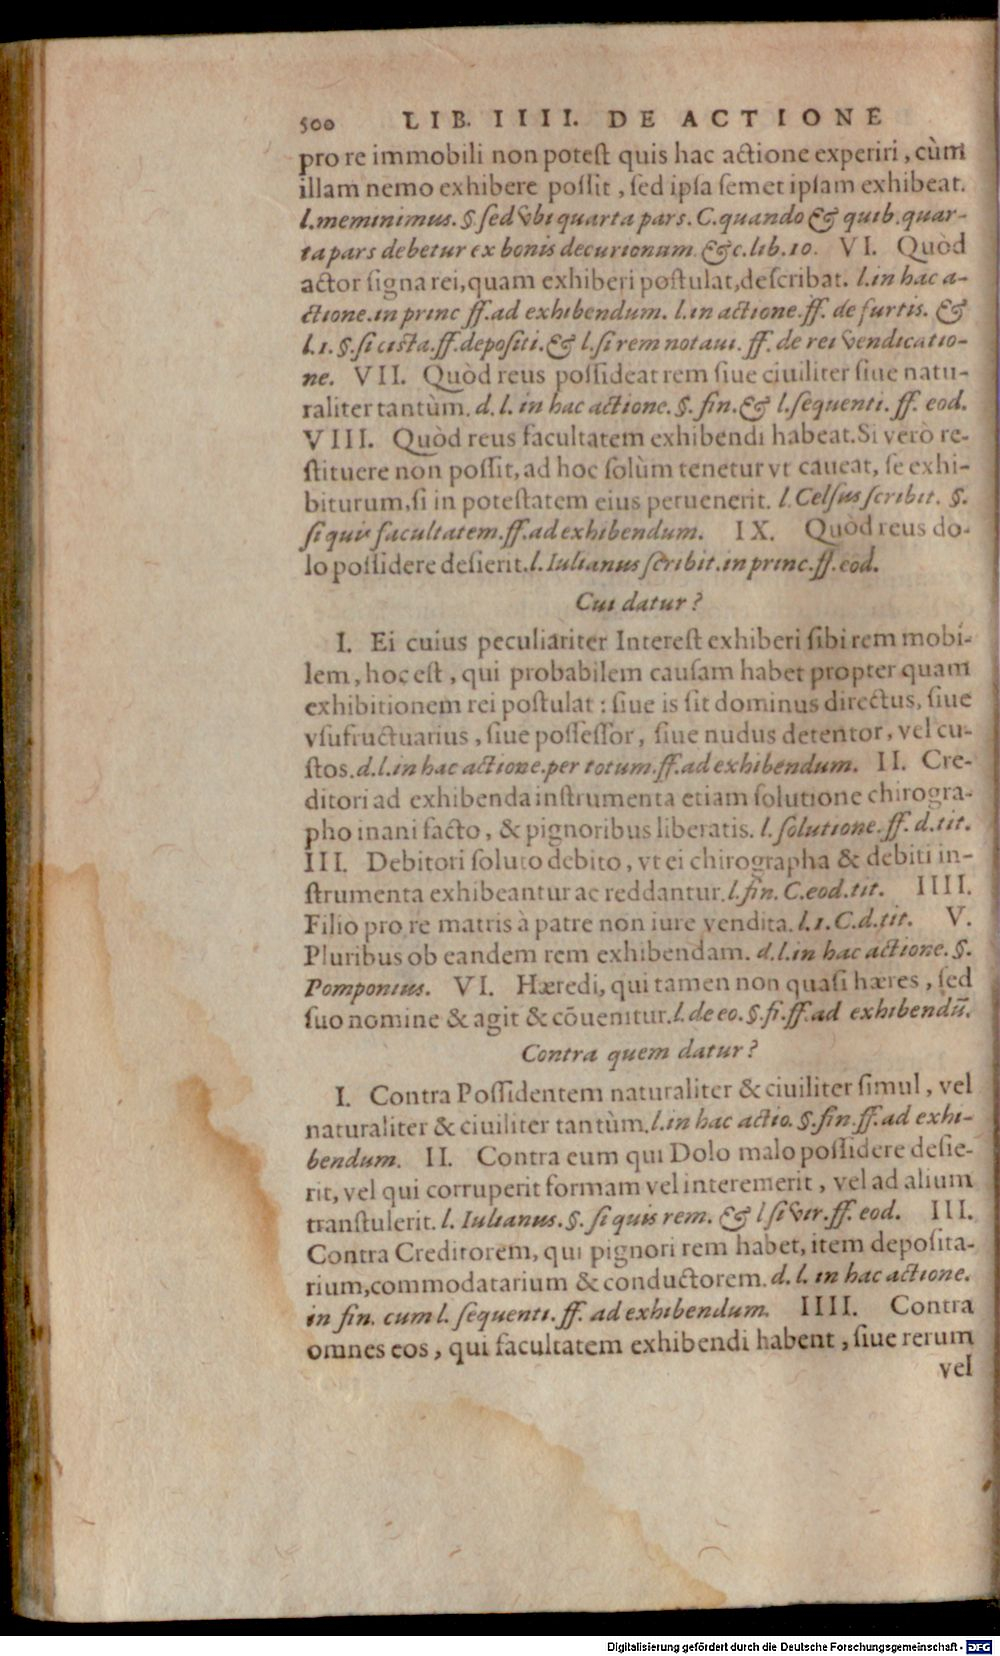 500 LIB. IIII. DE ACTIONE
pro re immobili non potest quis hac actione experiri, cùm
illam nemo exhibere possit, sed ipsa semet ipsam exhibeat.
l. meminimus. §. sed vbi quarta pars. C. quando & quib. quar-
ta pars debetur ex bonis decurionum. &c. lib. 10. VI. Quòd
actor signa rei, quam exhiberi postulat, describat. l. in hac a-
ctione. in princ ff. ad exhibendum. l. in actione. ff. de furtis. &
l. 1. §. si cista. ff. depositi. & l. si rem notaui. ff. de rei vendicatio-
ne. VII. Quòd reus possideat rem siue ciuiliter siue natu-
raliter tantùm. d. l. in hac actione. §. fin. & l. sequenti. ff. eod.
VIII. Quòd reus facultatem exhibendi habeat. Si verò re-
stituere non possit, ad hoc solùm tenetur vt caueat, se exhi-
biturum, si in potestatem eius peruenerit. l. Celsus scribit. §.
si quis facultatem. ff. ad exhibendum. IX. Quòd reus do-
lo possidere desierit. l. Iulianus scribit. in princ. ff. eod.
Cui datur?
I. Ei cuius peculiariter Interest exhiberi sibi rem mobi-
lem, hoc est, qui probabilem causam habet propter quam
exhibitionem rei postulat: siue is sit dominus directus, siue
vsufructuarius, siue possessor, siue nudus detentor, vel cu-
stos. d. l. in hac actione. per totum. ff. ad exhibendum. II. Cre-
ditori ad exhibenda instrumenta etiam solutione chirogra-
pho inani facto, & pignoribus liberatis. l. solutione. ff. d. tit.
III. Debitori soluto debito, vt ei chirographa & debiti in-
strumenta exhibeantur ac reddantur. l. fin. C. eod. tit. IIII.
Filio pro re matris à patre non iure vendita. l. 1. C. d. tit. V.
Pluribus ob eandem rem exhibendam. d. l. in hac actione. §.
Pomponius. VI. Hæredi, qui tamen non quasi hæres, sed
suo nomine & agit & cōuenitur. l. de eo. §. fi. ff. ad exhibendū.
Contra quem datur?
I. Contra Possidentem naturaliter & ciuiliter simul, vel
naturaliter & ciuiliter tantùm. l. in hac actio. §. fin. ff. ad exhi-
bendum. II. Contra eum qui Dolo malo possidere desie-
rit, vel qui corruperit formam vel interemerit, vel ad alium
transtulerit. l. Iulianus. §. si quis rem. & l si vir. ff. eod. III.
Contra Creditorem, qui pignori rem habet, item deposita-
rium, commodatarium & conductorem. d. l. in hac actione.
in fin. cum l. sequenti. ff. ad exhibendum. IIII. Contra
omnes eos, qui facultatem exhibendi habent, siue rerum
vel
Digitalisierung gefördert durch die Deutsche Forschungsgemeinschaft - DFG